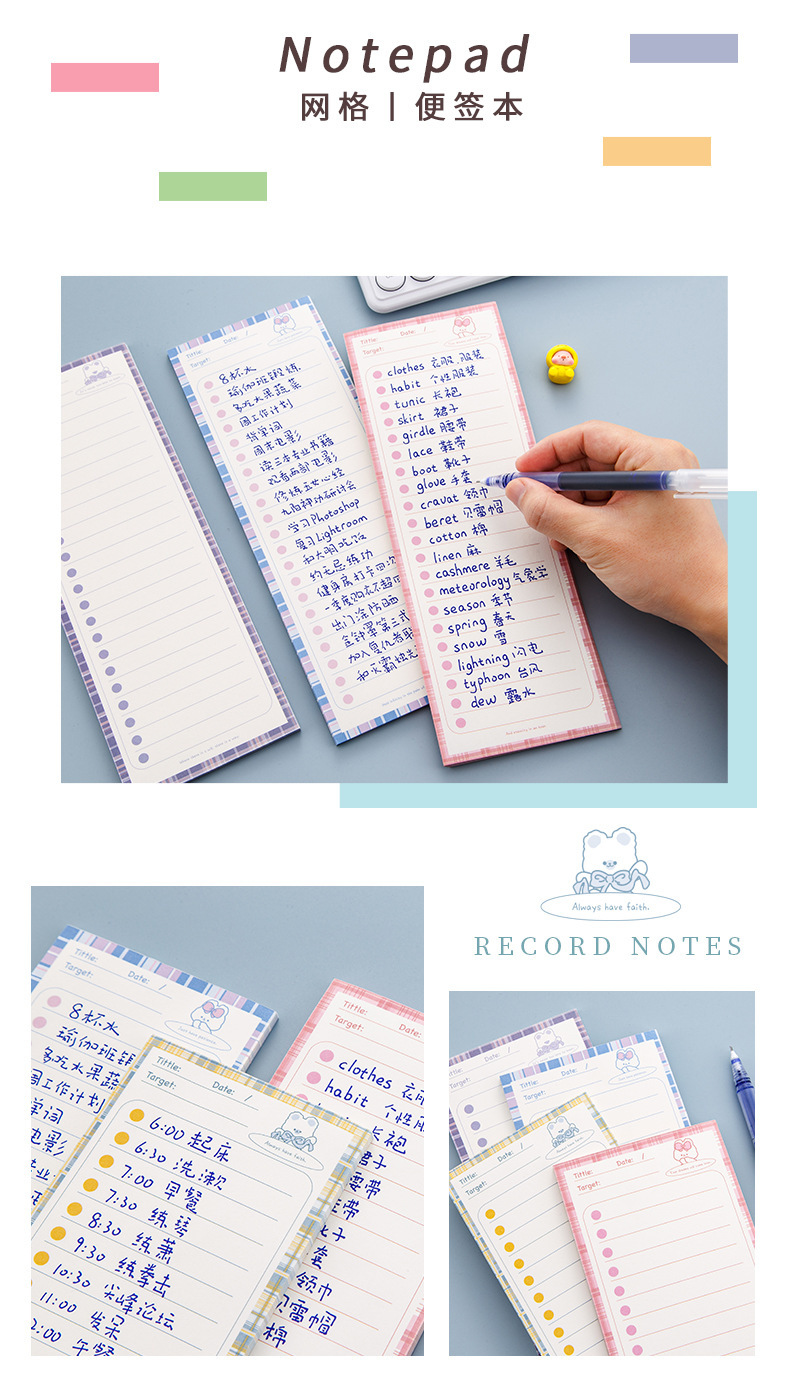 Notepad
网格丨便签本
Tittle:
Date: /
Target:
8杯水
瑜伽班锻炼
多吃水果蔬菜
周工作计划
背单词
周末电影
读三本专业书籍
观看两部电影
修炼玉女心经
九阳神功研讨会
学习Photoshop
复习Lightroom
和大明吃饭
约无忌练功
健身房打卡四次
季度购衣不超
出门涂防晒
金钟罩第三式
加入复仇者联
和灭霸
Tittle:
Date: /
Target:
clothes 衣服.服装
habit 个性服装
tunic 长袍
skirt 裙子
girdle 腰带
lace 鞋带
boot 靴子
glove 手套
cravat 领巾
beret 贝雷帽
cotton 棉
linen 麻
cashmere 羊毛
meteorology 气象学
season 季节
spring 春天
snow 雪
lightning 闪电
typhoon 台风
dew 露水
Always have faith.
RECORD NOTES
Tittle:
Date: /
Target:
8杯水
瑜伽班锻
多吃水果蔬
周工作计划
单词
电影
Tittle:
Target:
Date:
clothes 衣服
habit 个性服
长袍
裙子
腰带
鞋带
靴子
套
领巾
贝雷帽
棉
Tittle:
Date: /
Target:
Always have faith.
6:00 起床
6:30 洗漱
7:00 早餐
7:30 练琴
8:30 练萧
9:30 练拳击
10:30 尖峰论坛
11:00 发呆
2:00 午餐
Date: /
Target:
Tittle:
Date: /
Target:
Tittle:
Date: /
Target:
Tittle:
Date: /
Target: